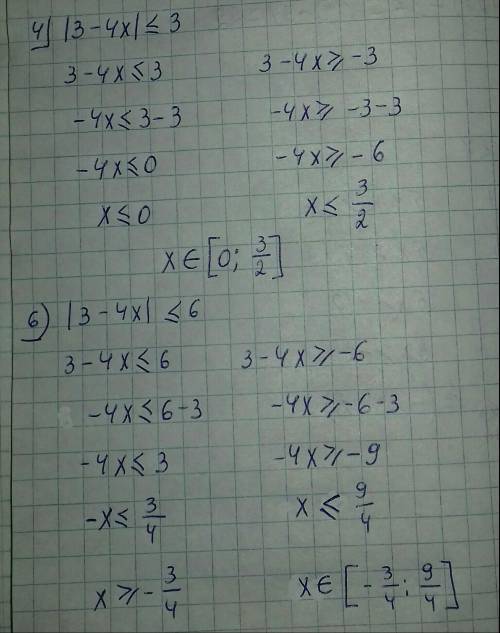 4) |3-4x| ≤ 3
3-4x ≤ 3    3-4x ≥ -3
-4x ≤ 3-3    -4x ≥ -3-3
-4x ≤ 0    -4x ≥ -6
x ≤ 0    x ≤ 3/2
x ∈ [0; 3/2]
6) |3-4x| ≤ 6
3-4x ≤ 6    3-4x ≥ -6
-4x ≤ 6-3    -4x ≥ -6-3
-4x ≤ 3    -4x ≥ -9
-x ≤ 3/4    x ≤ 9/4
x ≥ -3/4    x ∈ [-3/4; 9/4]